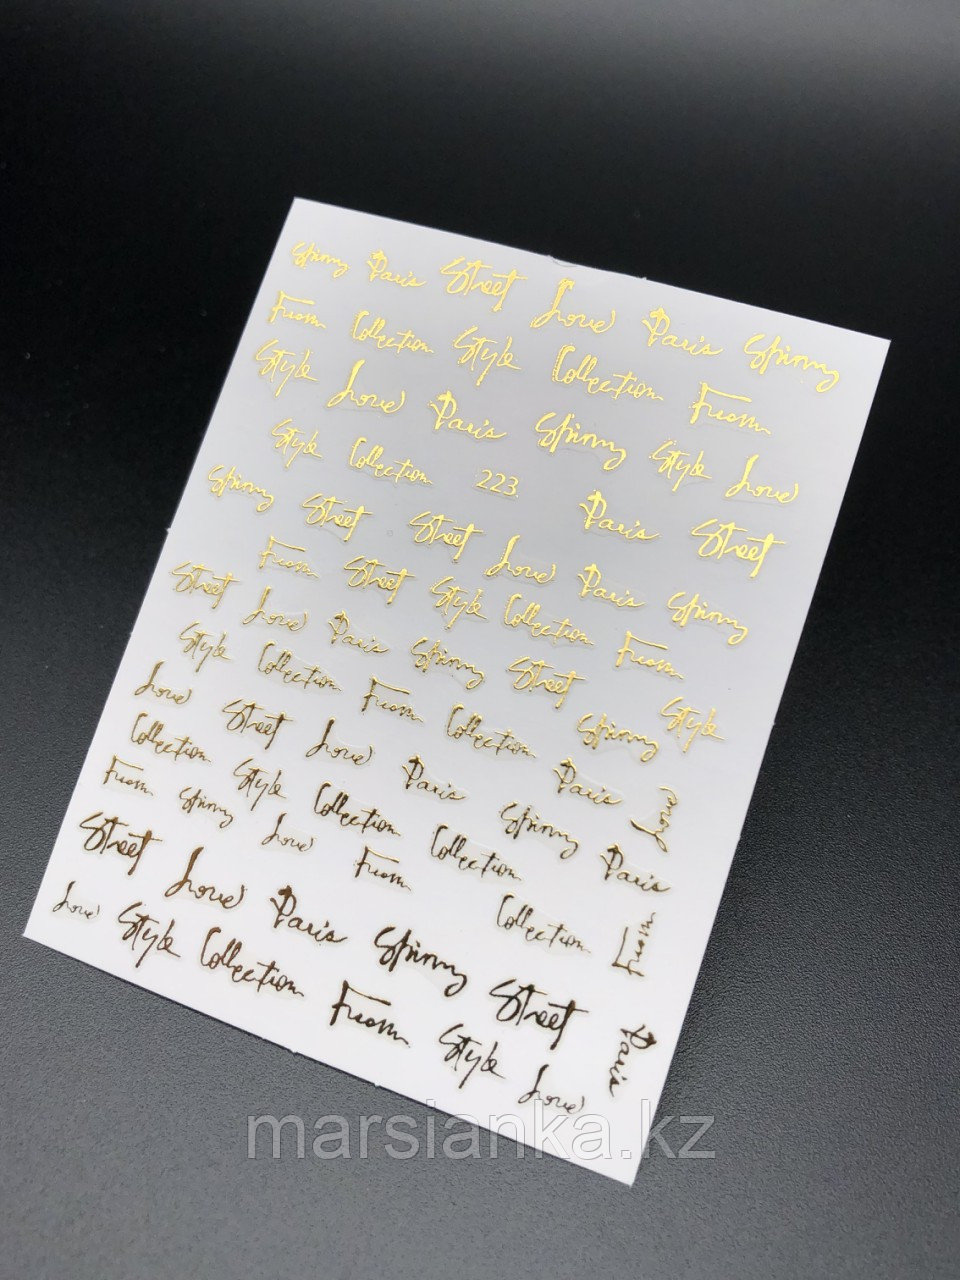 Spinny Paris Street Love Paris Spinny
From Collection Style Collection From
Style Love Paris Spinny Style Love
Style Collection 223 Paris Street
Spinny Street Street Love Paris Spinny
From Street Style Collection From
Street Love Paris Spinny Street Spinny Style
Style Collection From Collection Paris Love
Love Street Love Paris Spinny Paris
Collection Style Collection Collection
From Spinny Love From Collection From
Street Love Paris Spinny Street Paris
Love Style Collection From Style Love
marsianka.kz